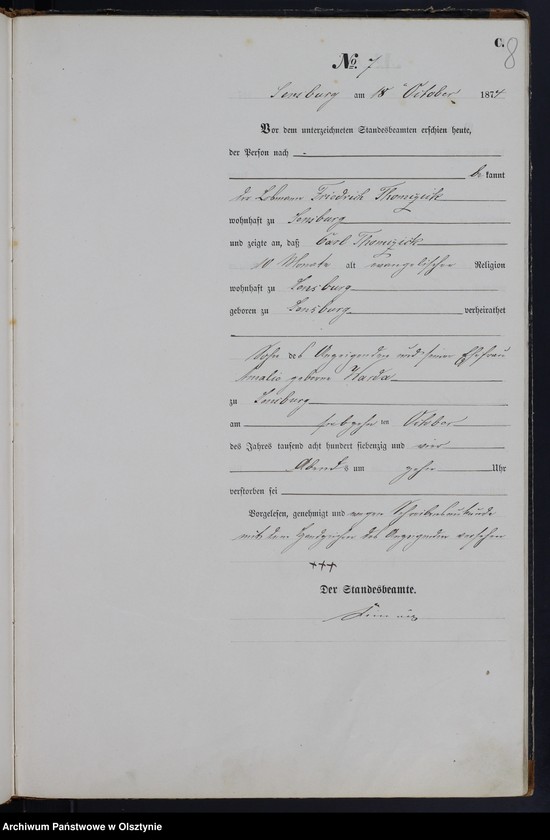 C.
8
No. 7
Sensburg am 18 October 1874
Vor dem unterzeichneten Standesbeamten erschien heute,
der Person nach
be kannt
der Friedrich Thomzick
wohnhaft zu Sensburg
und zeigte an, daß Carl Thomzick
10 Monate alt evangelischer Religion
wohnhaft zu Sensburg
geboren zu Sensburg verheirathet
Sohn des Anzeigenden und seiner Ehefrau
Amalie geborne
zu Sensburg
am siebzehn ten October
des Jahres tausend acht hundert siebenzig und vier
Abends um zehn Uhr
verstorben sei
Vorgelesen, genehmigt und wegen Schreibensunkunde
mit dem Handzeichen des Anzeigenden versehen
+++
Der Standesbeamte.
Archiwum Państwowe w Olsztynie